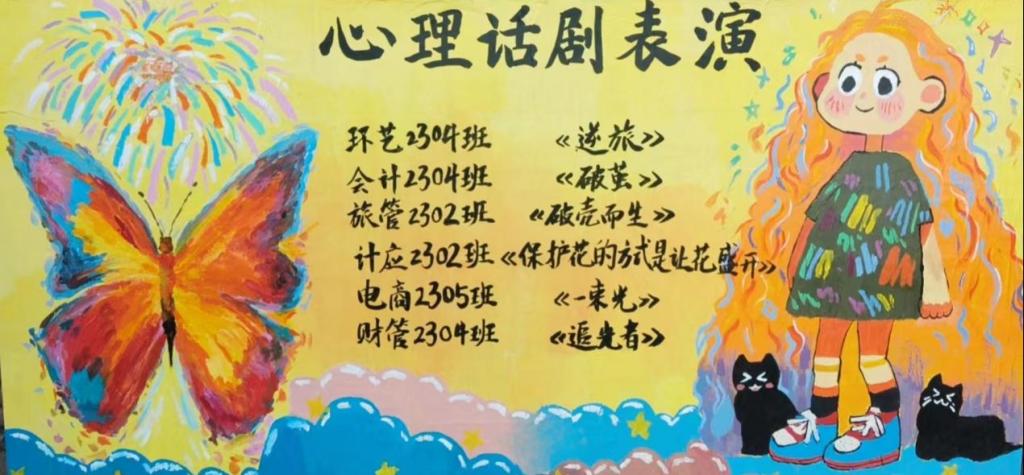 心理话剧表演
环艺2304班 《逆旅》
会计2304班 《破茧》
旅管2302班 《破壳而生》
计应2302班 《保护花的方式是让花盛开》
电商2305班 《一束光》
财管2304班 《追光者》